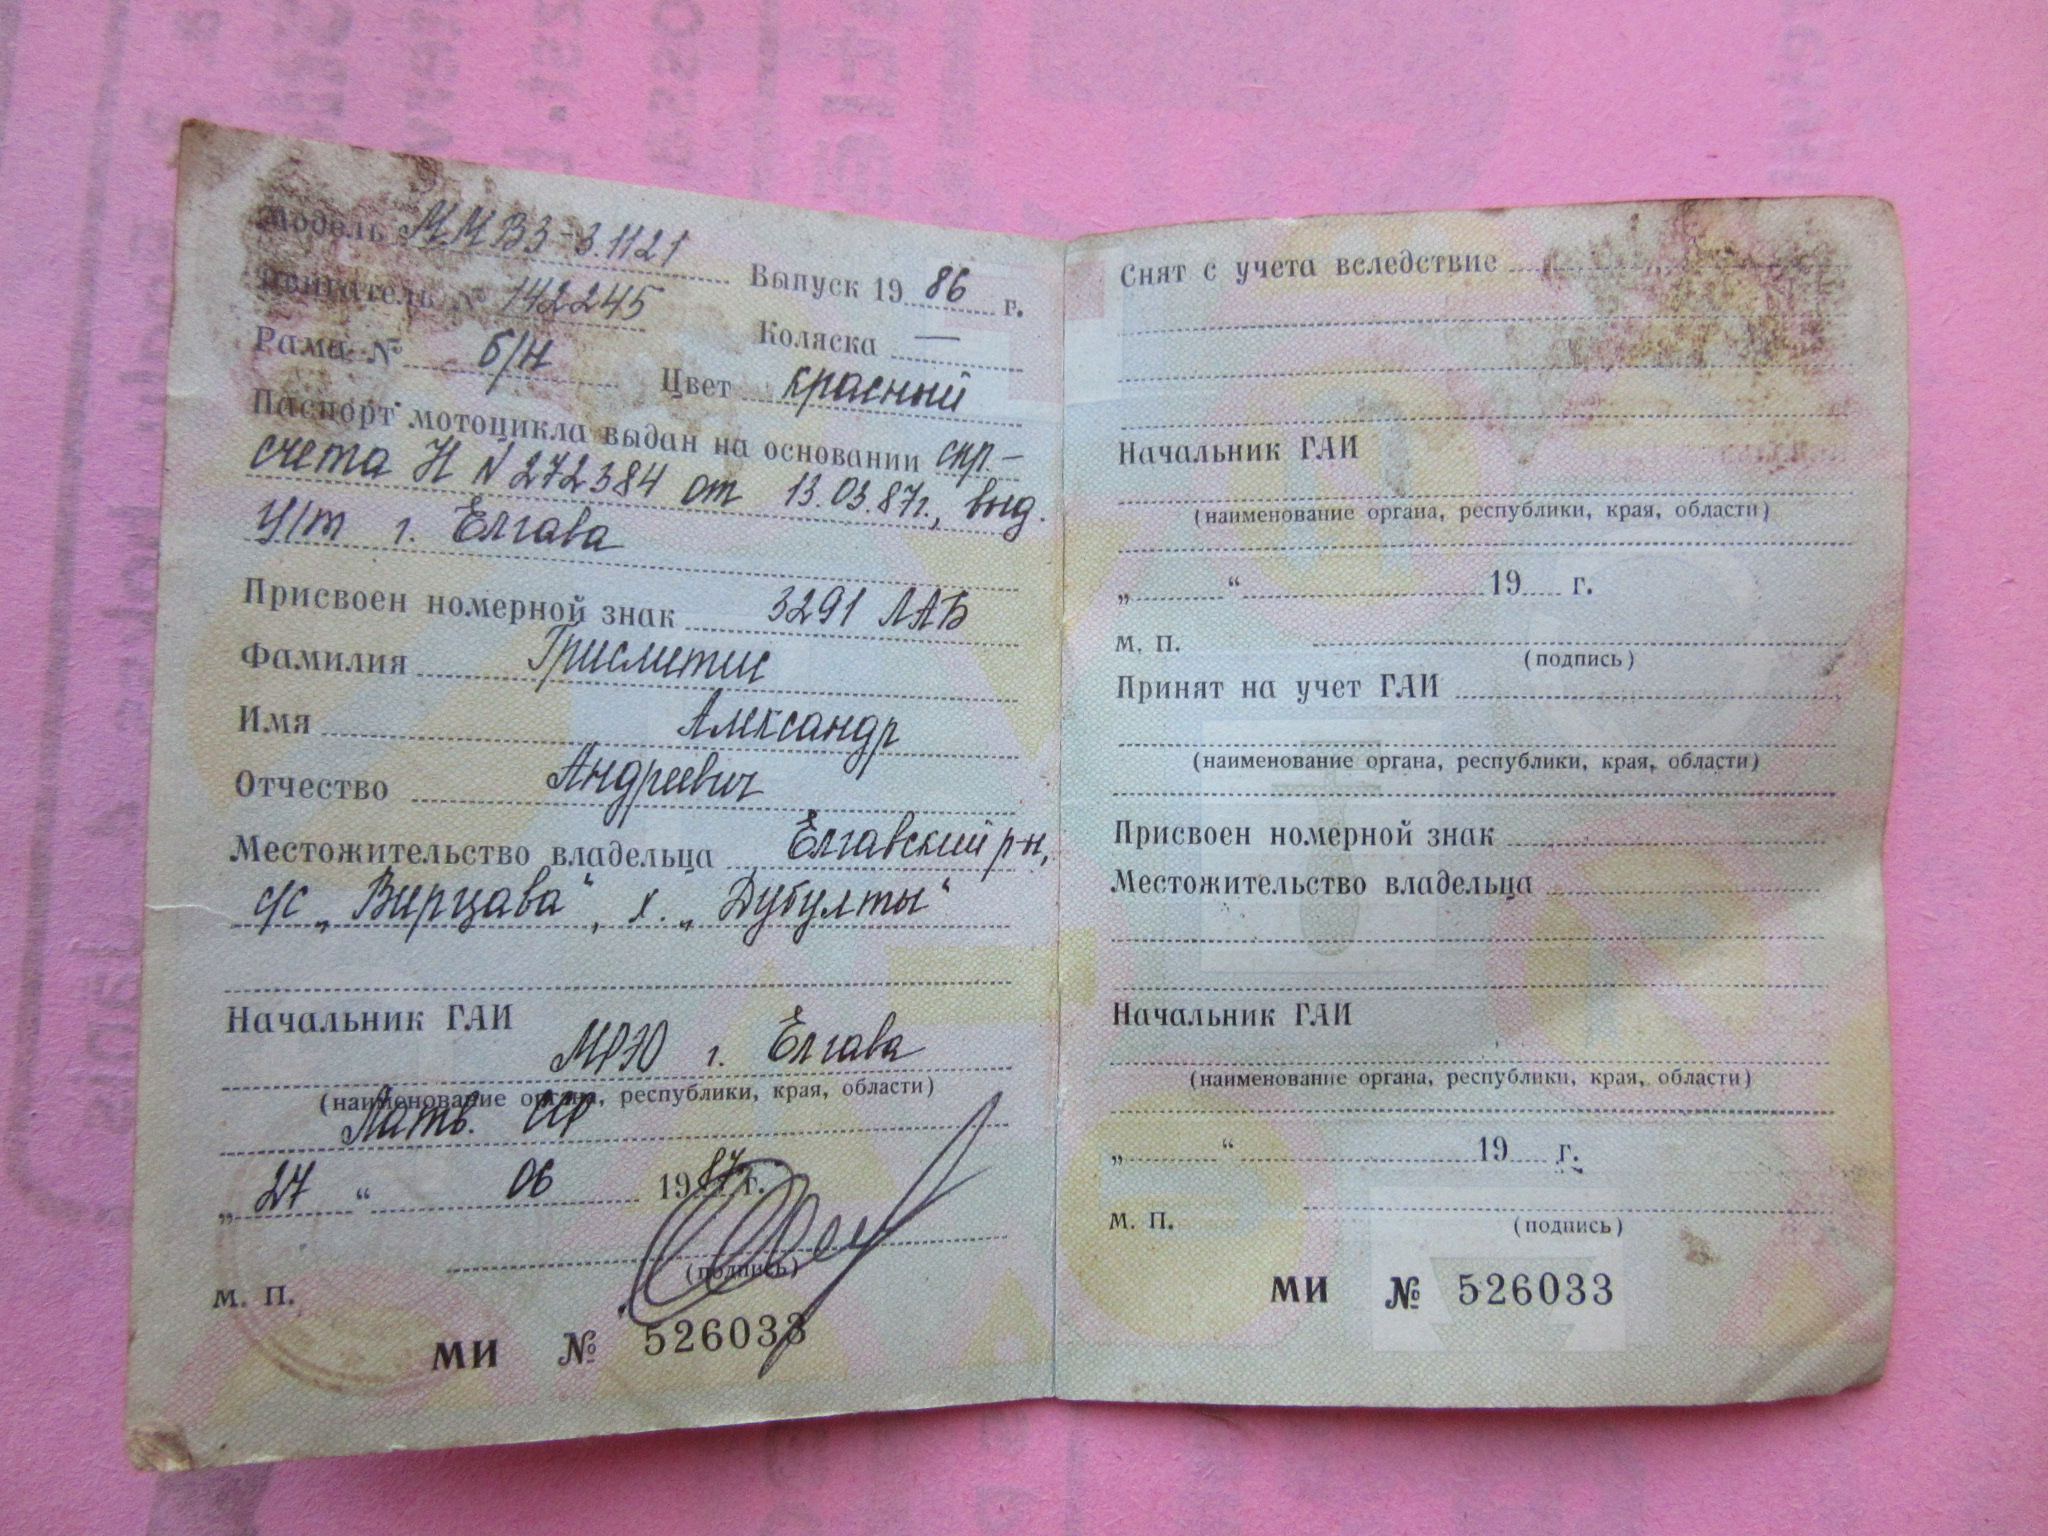 Модель ММВЗ-3.1121
Выпуск 1986 г.
Двигатель № 142245
Коляска —
Рама № б/н
Цвет красный
Паспорт мотоцикла выдан на основании спр.-
счета Н N 272384 от 13.03.87г., выд.
у/т г. Елгава
Присвоен номерной знак 3291 ЛАБ
Фамилия Грислитис
Имя Александр
Отчество Андреевич
Местожительство владельца Елгавский р-н,
с/с „Вирцава“, х. „Дубулты“
Начальник ГАИ
МРЭО г. Елгава
(наименование органа, республики, края, области)
Латв. ССР
„27“ 06 1987 г.
(подпись)
М. П.
МИ № 526033
Снят с учета вследствие
Начальник ГАИ
(наименование органа, республики, края, области)
„ “ 19 г.
М. П.
(подпись)
Принят на учет ГАИ
(наименование органа, республики, края, области)
Присвоен номерной знак
Местожительство владельца
Начальник ГАИ
(наименование органа, республики, края, области)
„ “ 19 г.
М. П.
(подпись)
МИ № 526033